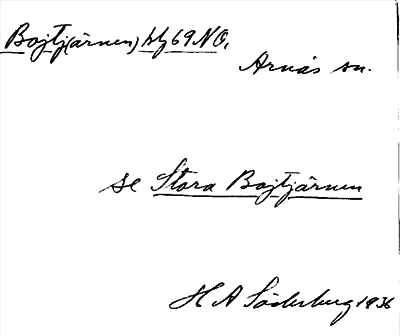 Bojtj(ärnen) blz 69 NO.
Arnäs sn.
se Stora Bojtjärnen
H A Söderburg 1936